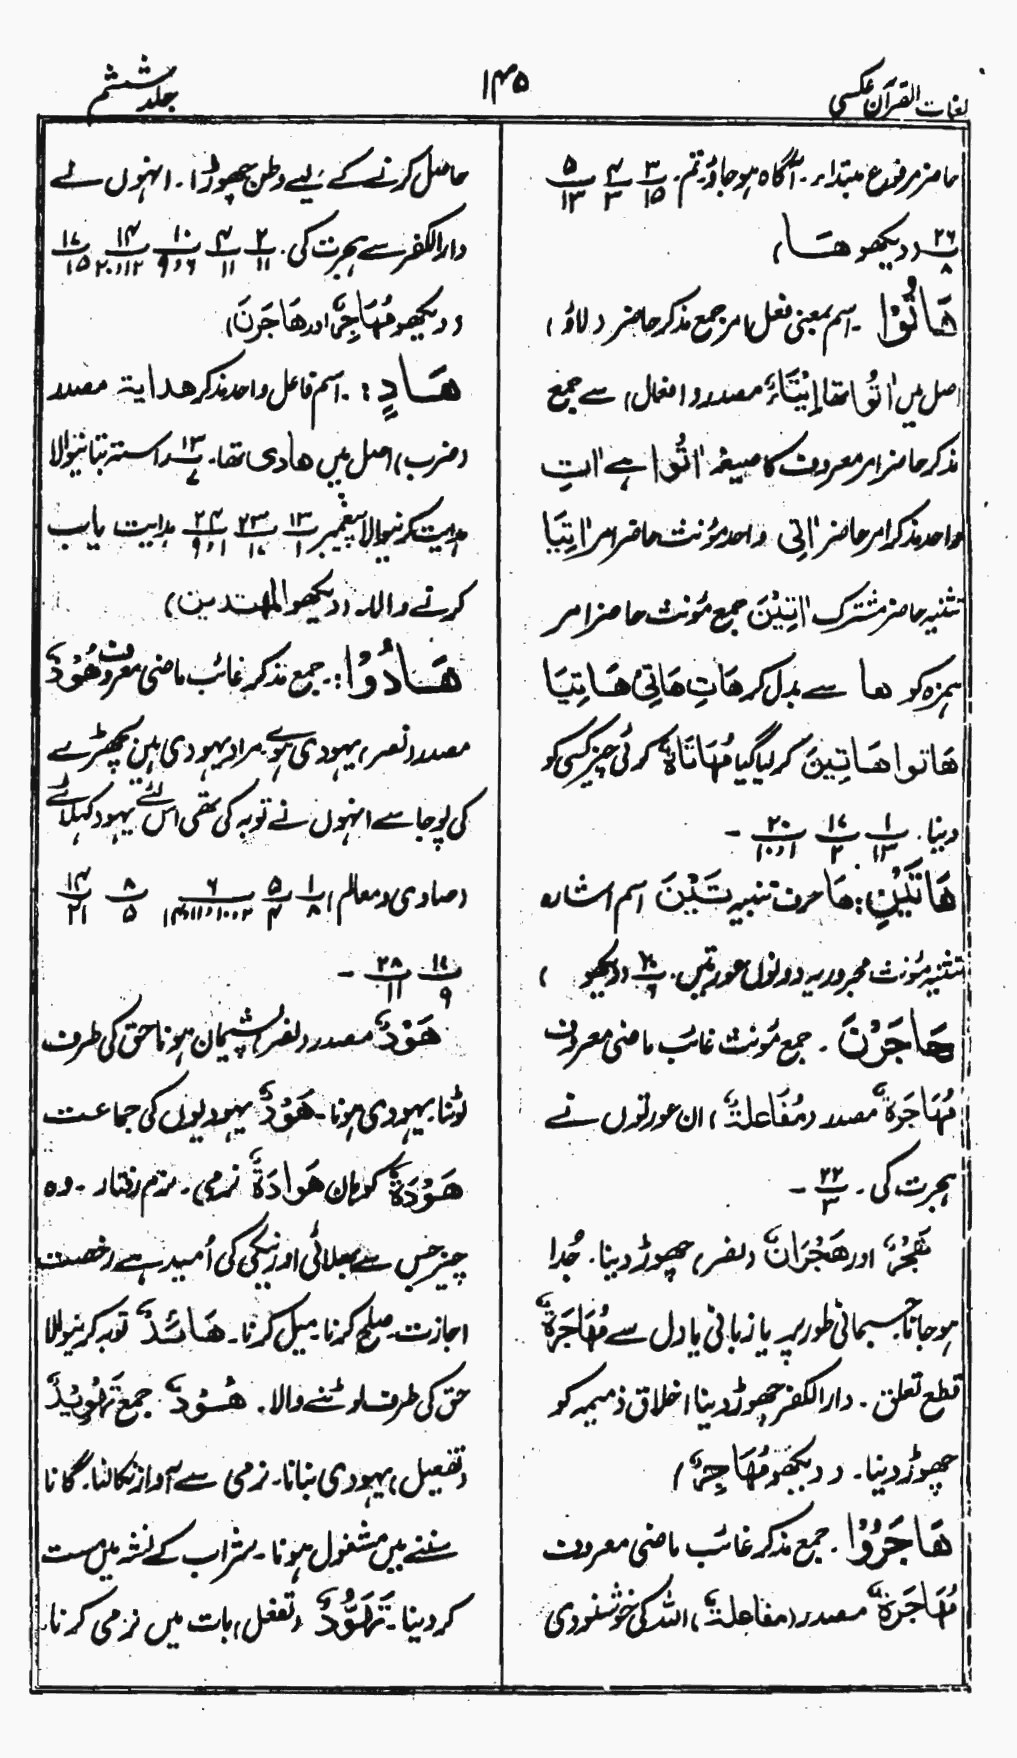 لغات القرآن عکسی
۱۴۵
جلد ششم
حاضر مرفوع مبتداء۔ آگاہ ہو جاؤ تم۔ ۳/۱۵ ۴/۳ ۵/۱۳
۲۶/۸ (دیکھو ھا)
ھَاتُوْا ۔ اسم بمعنی فعل امر جمع مذکر حاضر (لاؤ)
اصل میں اٰتُوا تھا اِیْتَاءٌ مصدر (افعال) سے جمع
مذکر حاضر امر معروف کا صیغہ اٰتُوا ہے اٰتِ
واحد مذکر امر حاضر اٰتِی واحد مؤنث حاضر امر اٰتِیَا
تثنیہ حاضر مشترک اٰتِیْنَ جمع مؤنث حاضر امر
ہمزہ کو ھا سے بدل کر ھَاتِ ھَاتِیْ ھَاتِیَا
ھَاتوا ھَاتِینَ کر لیا گیا مُھَاتَاۃٌ کوئی چیز کسی کو
دینا۔ ۱/۱۳ ۱۷/۲ ۲۰/۱،۱۰ ۔
ھَاتَیْنِ: ھَا حرف تنبیہ تَیْنَ اسم اشارہ
تثنیہ مؤنث مجرور یہ دونوں عورتیں۔ ۲۰/۶ (دیکھو )
ھَاجَرْنَ ۔ جمع مؤنث غائب ماضی معروف
مُھَاجَرَۃٌ مصدر (مُفَاعلۃٌ) ان عورتوں نے
ہجرت کی ۔ ۲۲/۳ ۔
ھَجْرٌ اور ھَجْرَانٌ (نصر) چھوڑ دینا۔ جُدا
ہو جانا جسمانی طور پر یا زبانی یا دل سے مُھَاجَرَۃٌ
قطع تعلق ۔ دار الکفر چھوڑ دینا اخلاق ذمیمہ کو
چھوڑ دینا۔ (دیکھو مُھَاجِرٌ)
ھَاجَرُوْا ۔ جمع مذکر غائب ماضی معروف
مُھَاجَرَۃٌ مصدر (مفاعلۃٌ) اللہ کی خوشنودی
حاصل کرنے کے لیے وطن چھوڑا۔ انہوں نے
دار الکفر سے ہجرت کی۔ ۲/۱۱ ۴/۱۱ ۱۰/۶،۹ ۱۴/۱۲،۲۰ ۱۷/۱۵
(دیکھو مُھَاجِرٌ اور ھَاجَرْنَ)
ھَادٍ: ۔ اسم فاعل واحد مذکر ھدایۃ مصدر
(ضرب) اصل میں ھادی تھا۔ ۱۳/۷ راستہ بتانیوالا
ہدایت کرنیوالا پیغمبر ۱۳/۱ ۲۳/۱۷ ۲۴/۱،۹ ہدایت یاب
کرنے والا۔ (دیکھو المھتدین)
ھَادُوْا: ۔ جمع مذکر غائب ماضی معروف ھُوْدٌ
مصدر (نصر) یہودی ہوئے۔ مراد یہودی ہیں بچھڑے
کی پوجا سے انہوں نے توبہ کی تھی اس لئے یہود کہلائے
(صاوی و معالم) ۱/۸ ۵/۴ ۶/۲،۱۰،۱۱،۱۴ ۸/۵ ۱۴/۲۱
۱۷/۹ ۲۸/۱۱ ۔
ھَوْدٌ مصدر (نصر) پشیمان ہونا حق کی طرف
لوٹنا یہودی ہونا۔ ھَوْدٌ یہودیوں کی جماعت
ھَوْدَۃٌ کوہان ھَوَادَۃٌ نرمی۔ نرم رفتار ۔ وہ
چیز جس سے بھلائی اور نیکی کی اُمید ہے رخصت
اجازت۔ صلح کرنا۔ میل کرنا۔ ھَائدٌ توبہ کرنیوالا
حق کی طرف لوٹنے والا۔ ھُوْدٌ جمع تَھْوِیْدٌ
(تفعیل) یہودی بنانا۔ نرمی سے آواز نکالنا۔ گانا
سننے میں مشغول ہونا۔ شراب کے نشہ میں مست
کر دینا۔ تَھَوُّدٌ (تفعل) بات میں نرمی کرنا۔